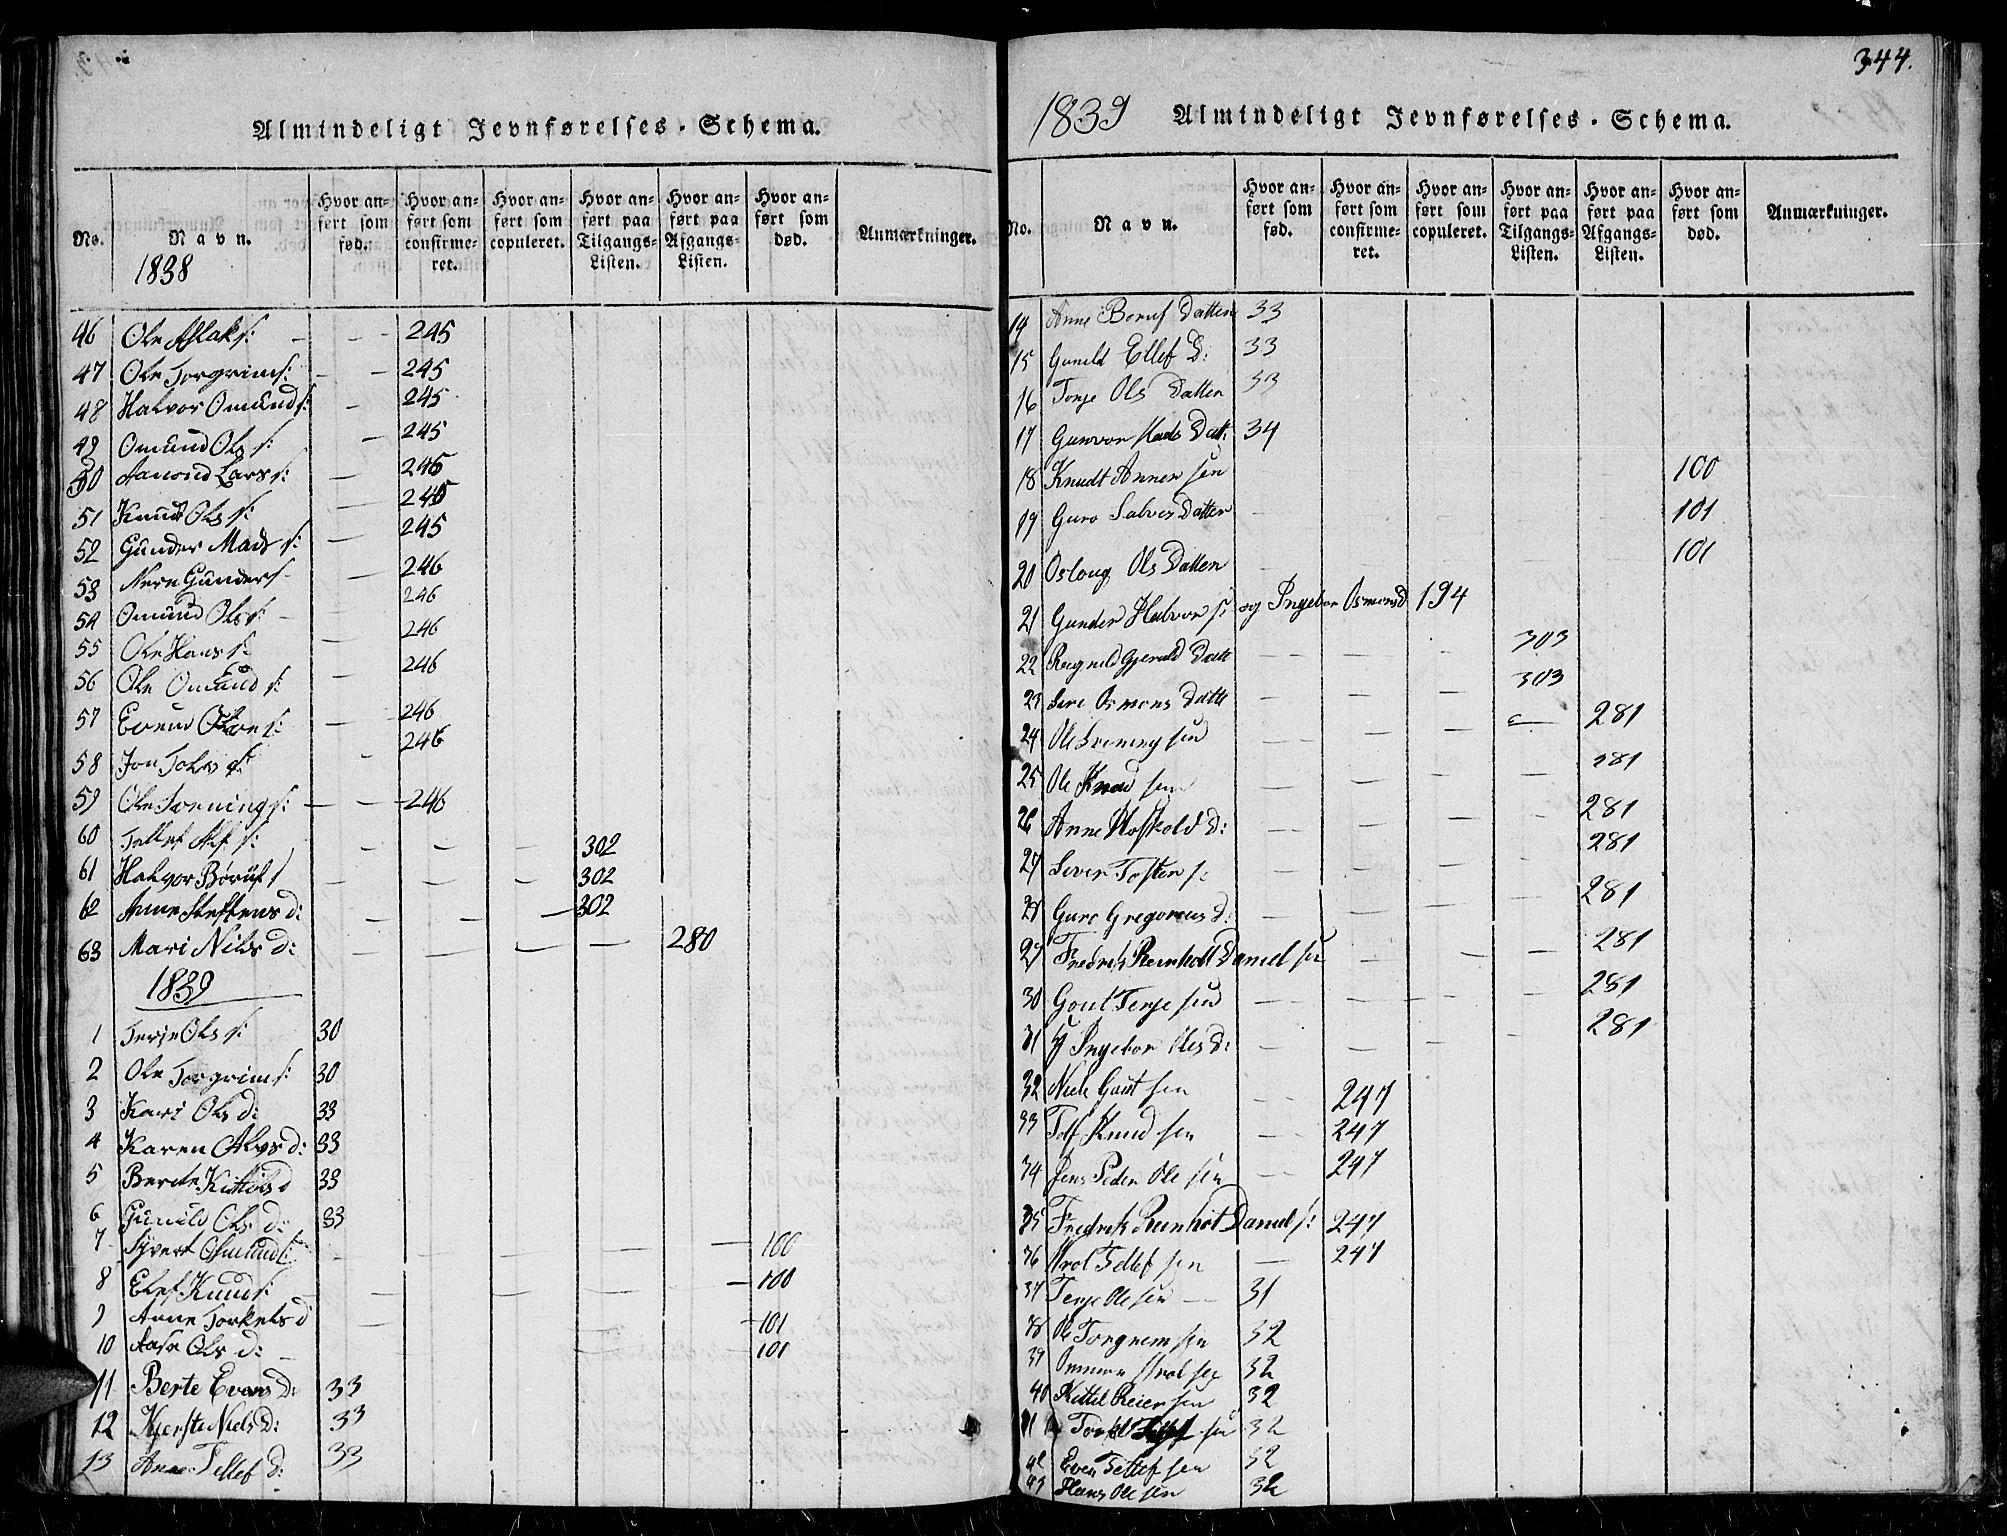 Almindeligt Jevnførelses-Schema.
No. Navn. Hvor anført som fød. Hvor anført som confirmeret. Hvor anført som copuleret. Hvor anført paa Tilgangs-Listen. Hvor anført paa Afgangs-Listen. Hvor anført som død. Anmærkninger.
1838
46 Ole Aslak s: 245
47 Ole Torgrim s: 245
48 Halvor Omund s: 245
49 Omund Ols s: 245
50 Aanond Lars s: 245
51 Knud Ols s: 245
52 Gunder Mads s: 245
53 Gunder s 246
54 Omund Ols s: 246
55 Ole Hans s: 246
56 Ole Omund s: 246
57 246
58 Jon 246
59 Ole 246
60 Tellef s: 302
61 Halvor Børuf s 302
62 Anne Steffens d: 302
63 Mari Nils d: 280
1839
1 Terje Ols s: 30
2 Ole Torgrim s: 30
3 Kari Ols d: 33
4 Karen d: 33
5 Berte Kittils d 33
6 Gunild Ols d: 33
7 Syvert Osmund s: 100
8 Elef Knud s: 100
9 Anne Torkels d 101
10 Aase Ols d: 101
11 Berte Evens D: 33
12 Kjerste Niels D: 33
13 Anne Tellef d: 33
344.
1839 Almindeligt Jevnførelses-Schema.
No. Navn. Hvor anført som fød. Hvor anført som confirmeret. Hvor anført som copuleret. Hvor anført paa Tilgangs-Listen. Hvor anført paa Afgangs-Listen. Hvor anført som død. Anmærkninger.
14 Anne Boruf Datter 33
15 Gunild Ellef D: 33
16 Tonje Ols Datter 33
17 Gunvor Datt: 34
18 Knudt sen 100
19 Guro Salves Datter 101
20 Osloug Ols Datter 101
21 Gunder Halvor s: og Ingebor Osmonsd 194
22 Ragnild Gjeruld Datt 303
23 Osmons Datte 303
24 Ole sen 281
25 Ole Knud sen 281
26 Anne d: 281
27 Tosten s: 281
28 Guro Gregorius d: 281
29 Fredrik Reinholt Daniel sen 281
30 Gout Terje sen 281
31 Ingebor Oles d: 281
32 Niels Gout sen 247
33 Knud sen 247
34 Jens Peder Ole sen 247
35 Fredrik Reinholt Daniel s: 247
36 Tellef sen 247
37 Terje Ole sen 31
38 Ole Torgrem sen 32
39 32
40 Kittil Reier sen 32
41 sen 32
42 Even Tellef sen 32
43 Hans Ole sen 32